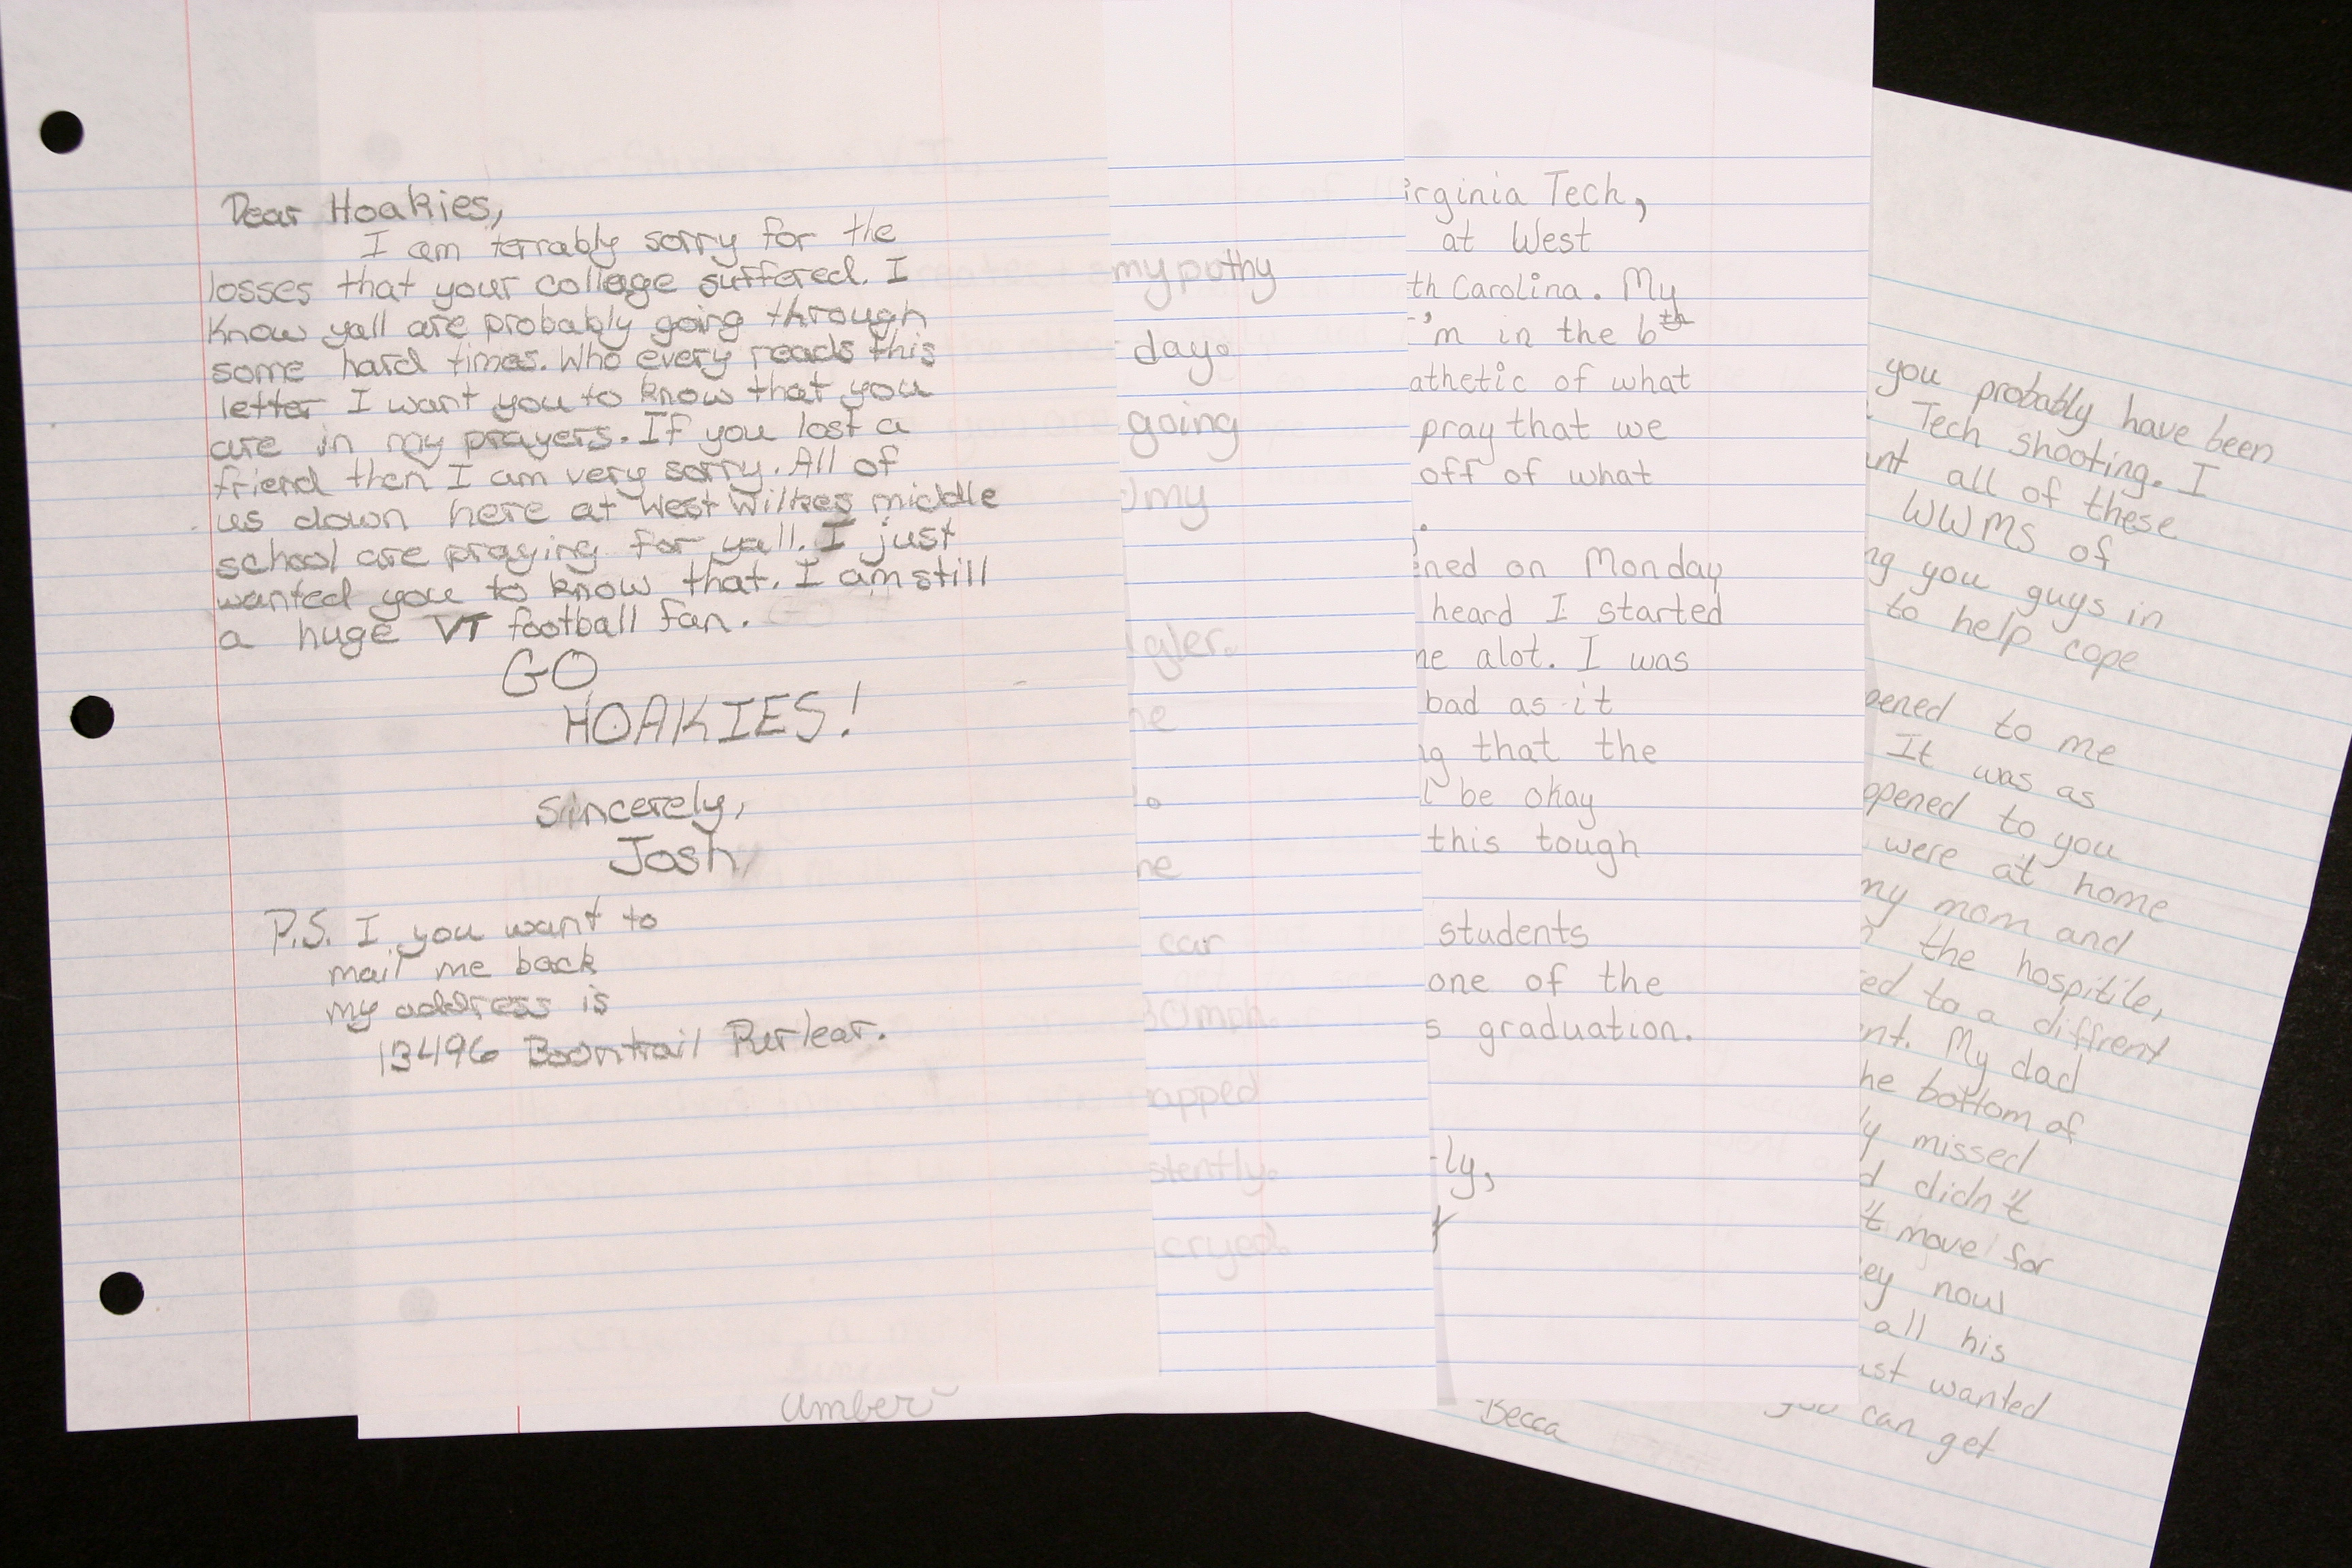 Dear Hoakies,
I am terrably sorry for the
losses that your collage suffered. I
know yall are probably going through
some hard times. Who every reads this
letter I want you to know that you
are in my prayers. If you lost a
friend then I am very sorry. All of
us down here at West Wilkes middle
school are praying for yall. I just
wanted you to know that. I am still
a huge VT football fan.
GO
HOAKIES!
Sincerely,
Josh
P.S. I you want to
mail me back
my address is
13496 Boontrail Purlear.
mypothy
day.
going
my
gler.
ne
ne
car
30mph.
apped
stently.
cryed.
Amber
irginia Tech,
at West
th Carolina. My
'm in the 6th
athetic of what
pray that we
off of what
.
ned on Monday
heard I started
ne alot. I was
bad as it
ng that the
l be okay
this tough
students
one of the
s graduation.
ly,
you probably have been
Tech shooting. I
nt all of these
WWMS of
ng you guys in
to help cope
pened to me
It was as
opened to you
were at home
my mom and
the hospitile,
ed to a diffrent
nt. My dad
he bottom of
ly missed
d didn't
't move for
ey now
all his
ust wanted
you can get
-Becca